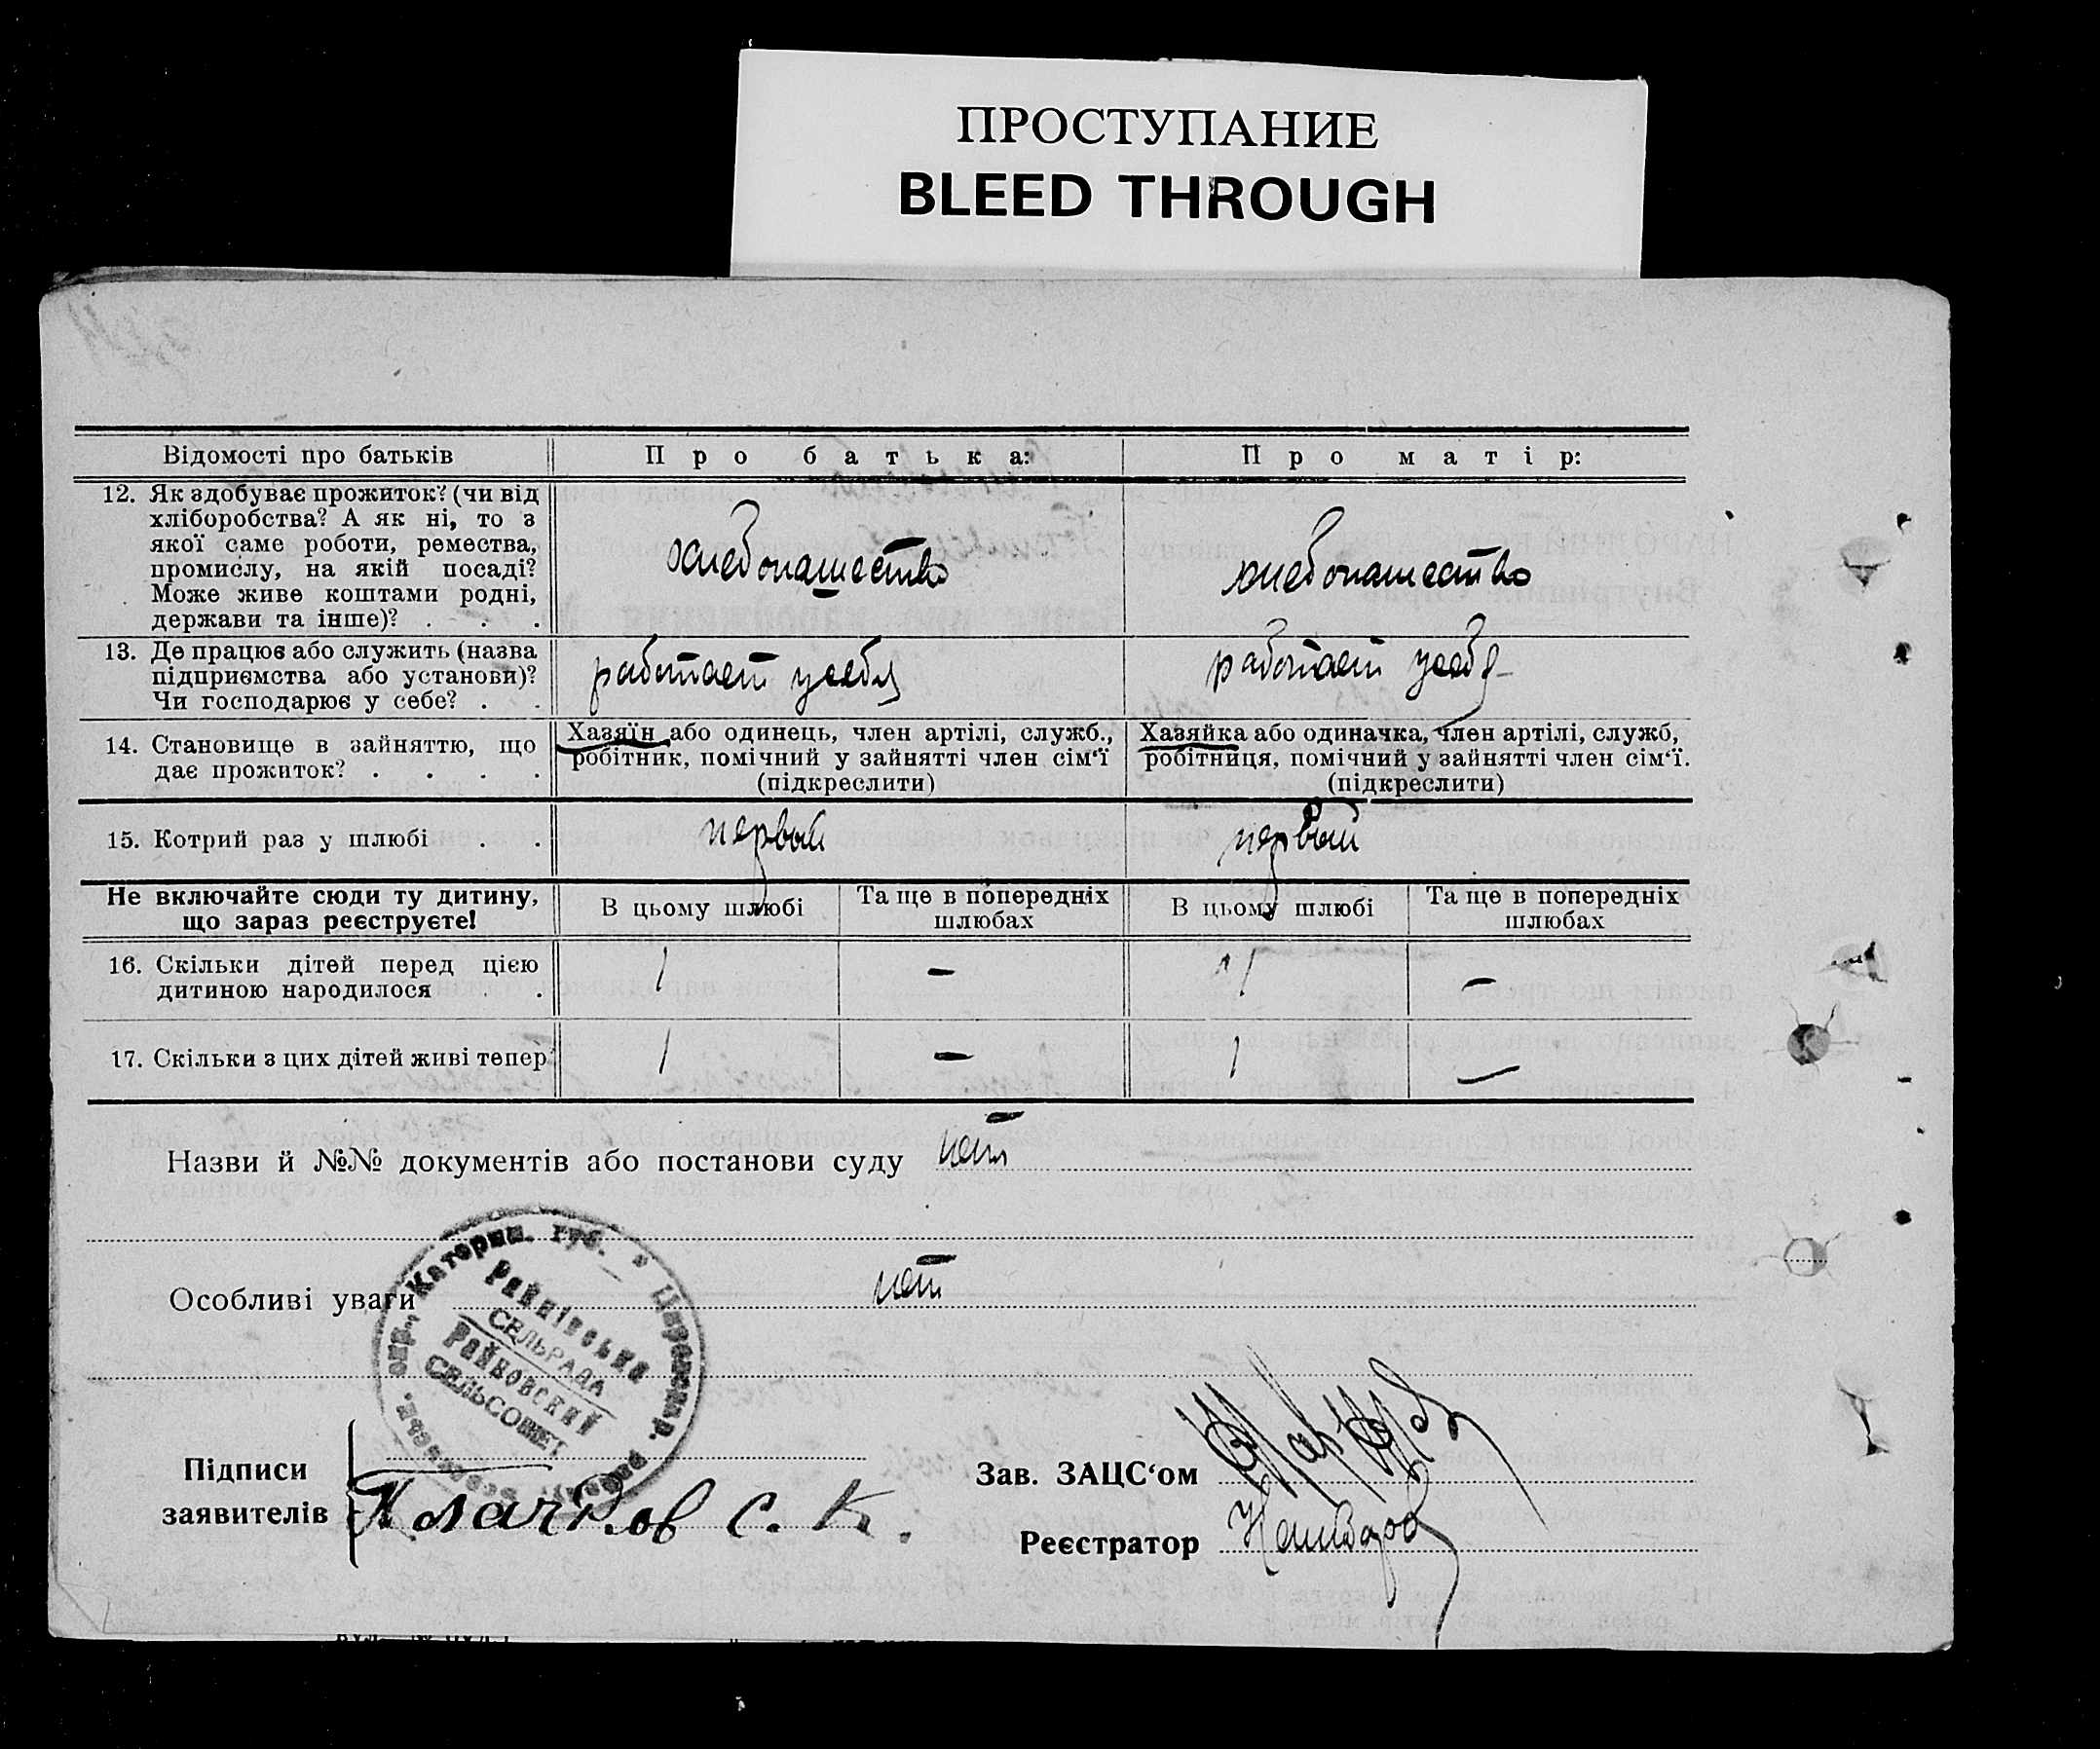 ПРОСТУПАНИЕ
BLEED THROUGH
Відомості про батьків
Про батька:
Про матір:
12. Як здобуває прожиток? (чи від
хліборобства? А як ні, то з
якої саме роботи, ремества,
промислу, на якій посаді?
Може живе коштами родні,
держави та інше)? . . .
хлебопашество
хлебопашество
13. Де працює або служить (назва
підприємства або установи)?
Чи господарює у себе? . .
работает у себя
работает у себя
14. Становище в зайняттю, що
дає прожиток? . . . .
Хазяїн або одинець, член артілі, служб.,
робітник, помічний у зайнятті член сім‘ї
(підкреслити)
Хазяйка або одиначка, член артілі, служб,
робітниця, помічний у зайнятті член сім‘ї.
(підкреслити)
15. Котрий раз у шлюбі . .
первый
первый
Не включайте сюди ту дитину,
що зараз реєструєте!
В цьому шлюбі
Та ще в попередніх
шлюбах
В цьому шлюбі
Та ще в попередніх
шлюбах
16. Скільки дітей перед цією
дитиною народилося . .
1
—
1
—
17. Скільки з цих дітей живі тепер
1
—
1
—
Назви й №№ документів або постанови суду нет
Особливі уваги нет
Катерин. губ.
Райківська
СЕЛЬРАДА
Райковский
СЕЛЬСОВЕТ
Підписи
заявителів
С. К.
Зав. ЗАЦС‘ом
Реєстратор